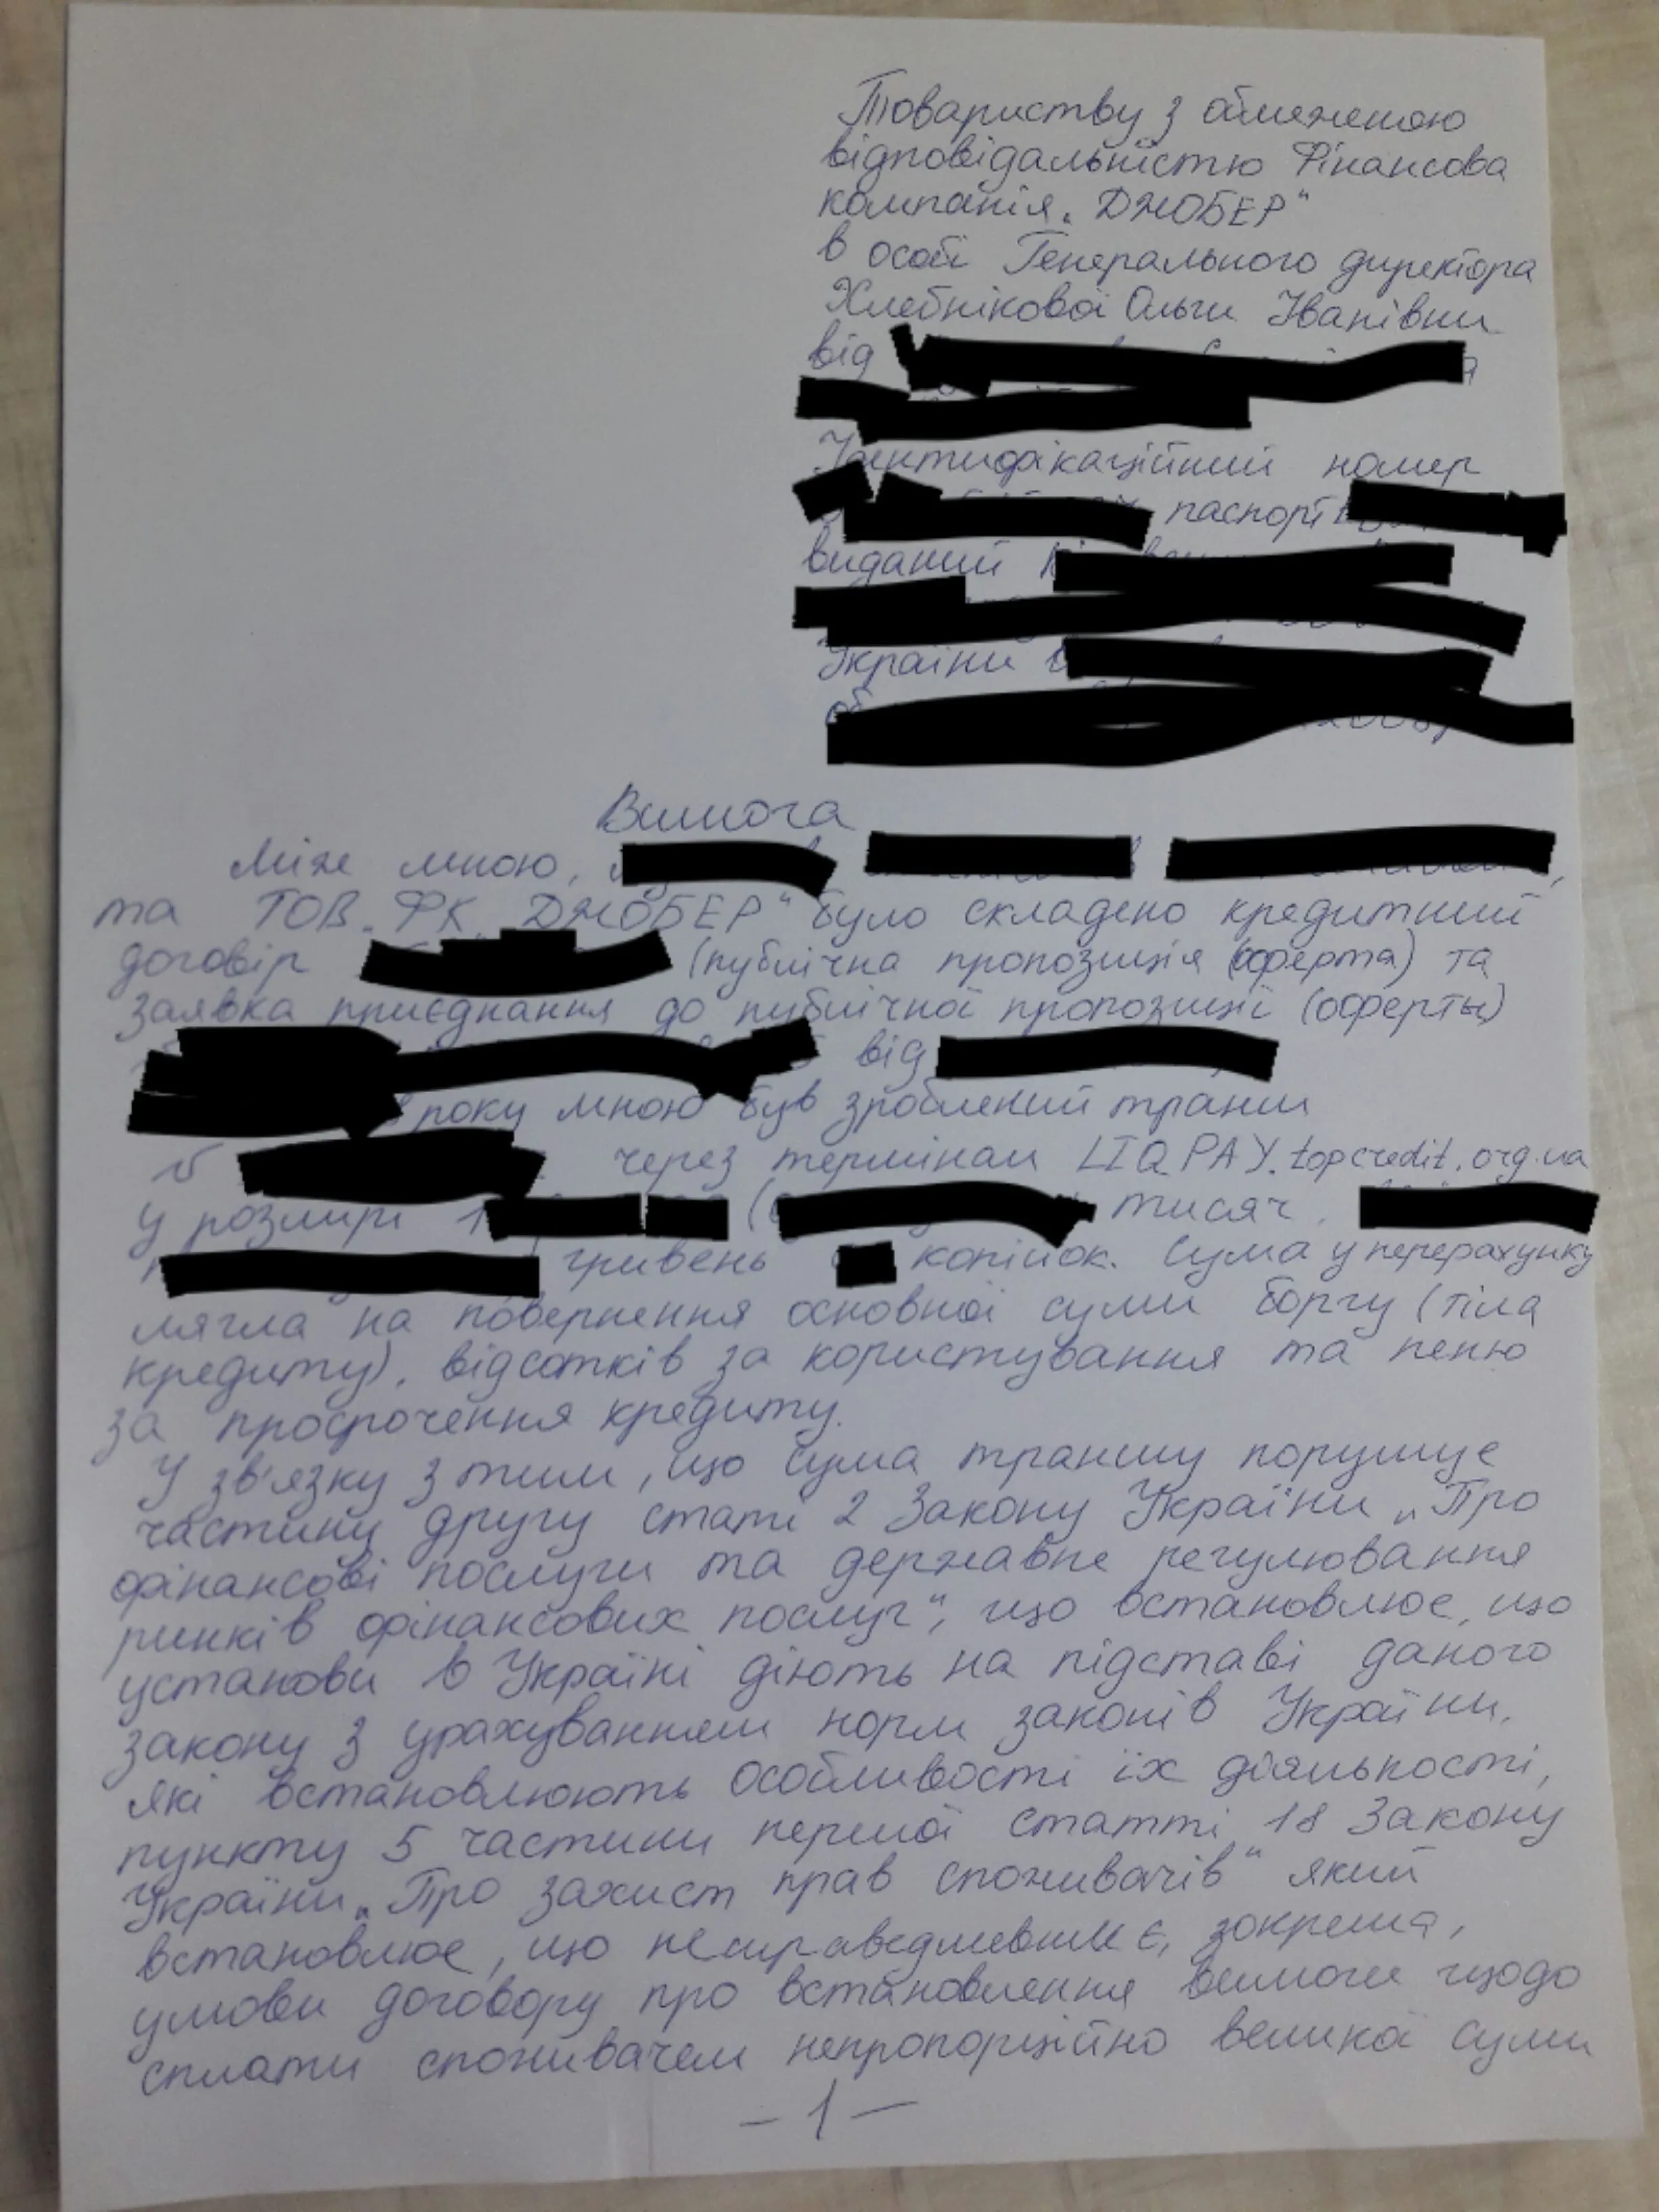 Товариству з обмеженою
відповідальністю Фінансова
компанія „ДЖОБЕР"
в особі Генерального директора
Хлебнікової Ольги Іванівни
від
Ідентифікаційний номер
паспорт
виданий
України в

Вимога
Між мною,
та ТОВ „ФК „ДЖОБЕР" було складено кредитний
договір (публічна пропозиція (оферта) та
заявка приєднання до публічної пропозиції (оферты)
від
року мною був зроблений транш
через термінал LIQPAY.topcredit.org.ua
у розмірі 1 ( тисяч
гривень копійок. Сума у перерахунку
лягла на повернення основної суми боргу (тіла
кредиту), відсотків за користування та пеню
за прострочення кредиту.
У зв'язку з тим, що сума траншу порушує
частину другу статі 2 Закону України „Про
фінансові послуги та державне регулювання
ринків фінансових послуг", що встановлює, що
установи в Україні діють на підставі даного
закону з урахуванням норм законів України,
які встановлюють особливості їх діяльності,
пункту 5 частини першої статті 18 Закону
України „Про захист прав споживачів" який
встановлює, що несправедливим є, зокрема,
умови договору про встановлення вимоги щодо
сплати споживачем непропорційно великої суми
– 1 –